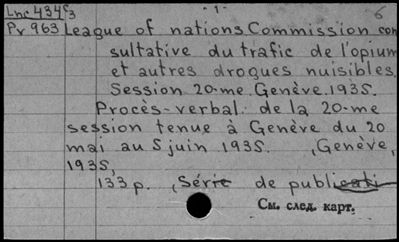 Lnc 434/3 - 1 - 6
Pv 963 League of nations Commission con
sultative du trafic de l'opium
et autres drogues nuisibles.
Session 20-me. Genève. 1935.
Procès-verbal de la 20-me
session tenue à Genève du 20
mai au 5 juin 1935. , Genève,
1935,
133 p. , Série de publicati
См. след. карт.